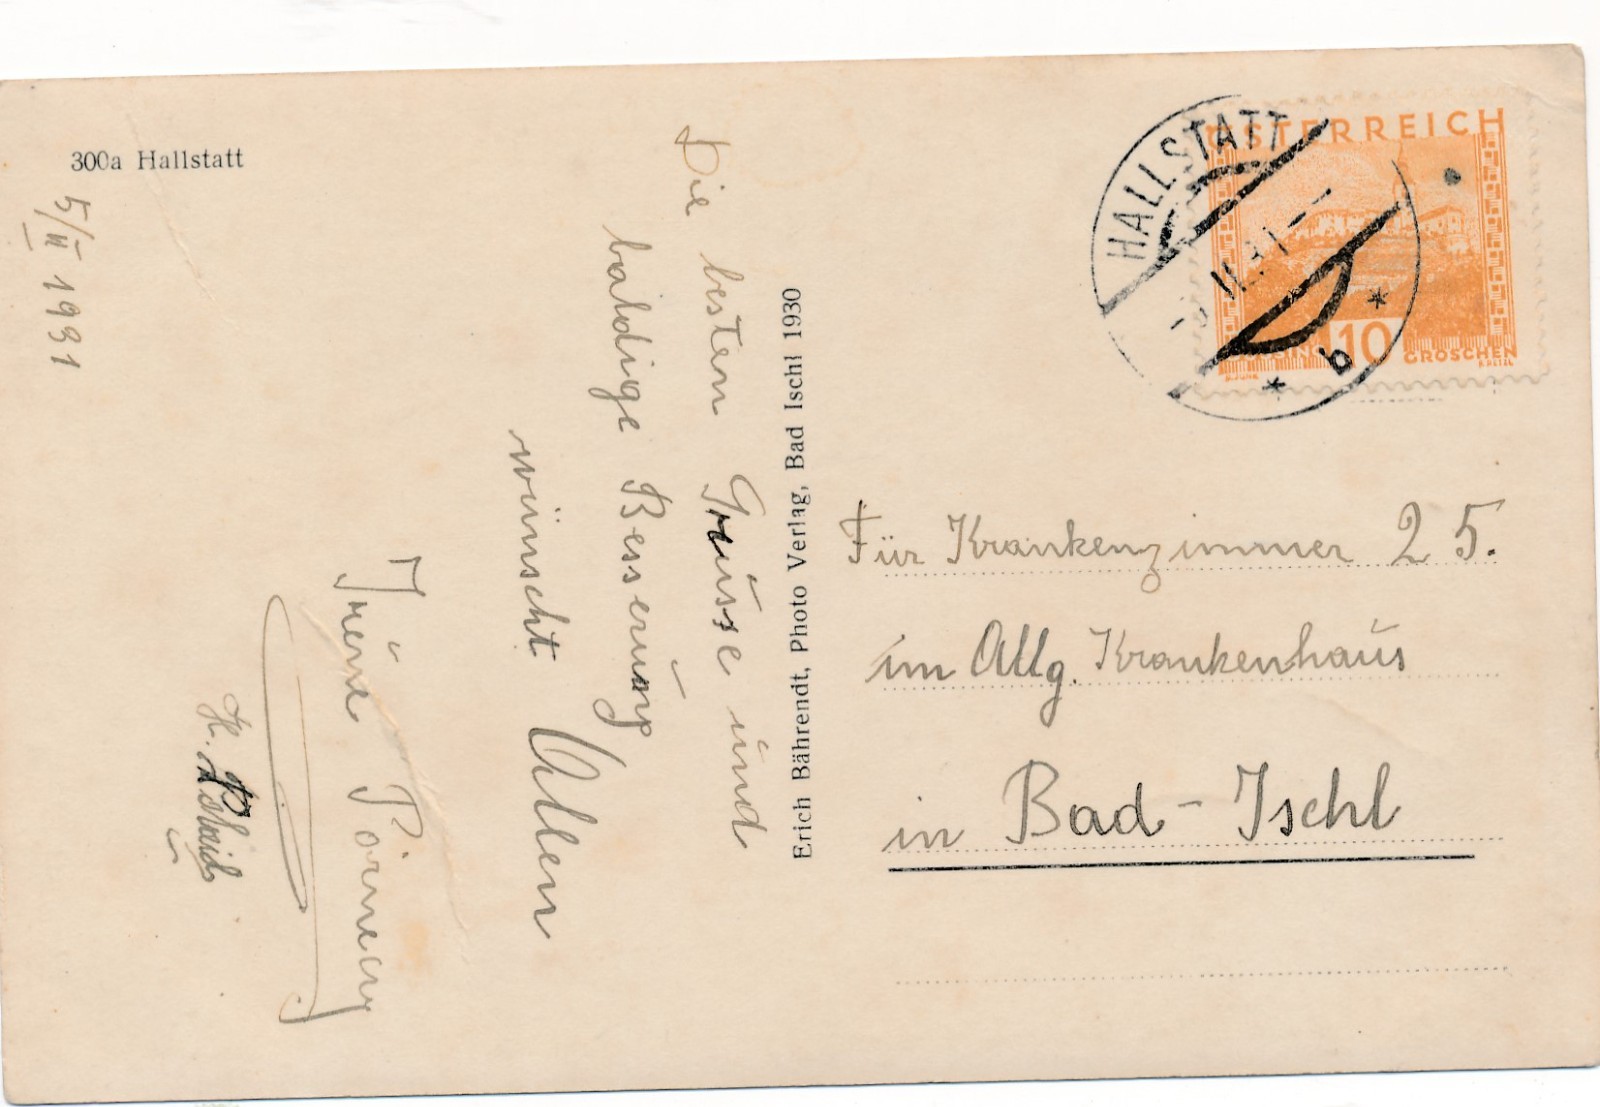 300a Hallstatt
5/VI 1931
Die besten Grüsse und
baldige Besserung
wünscht Allen
Irene
H.
Erich Bährendt, Photo Verlag, Bad Ischl 1930
HALLSTATT
b
ÖSTERREICH
10 GROSCHEN
Für Krankenzimmer 25.
im Allg. Krankenhaus
in Bad-Ischl